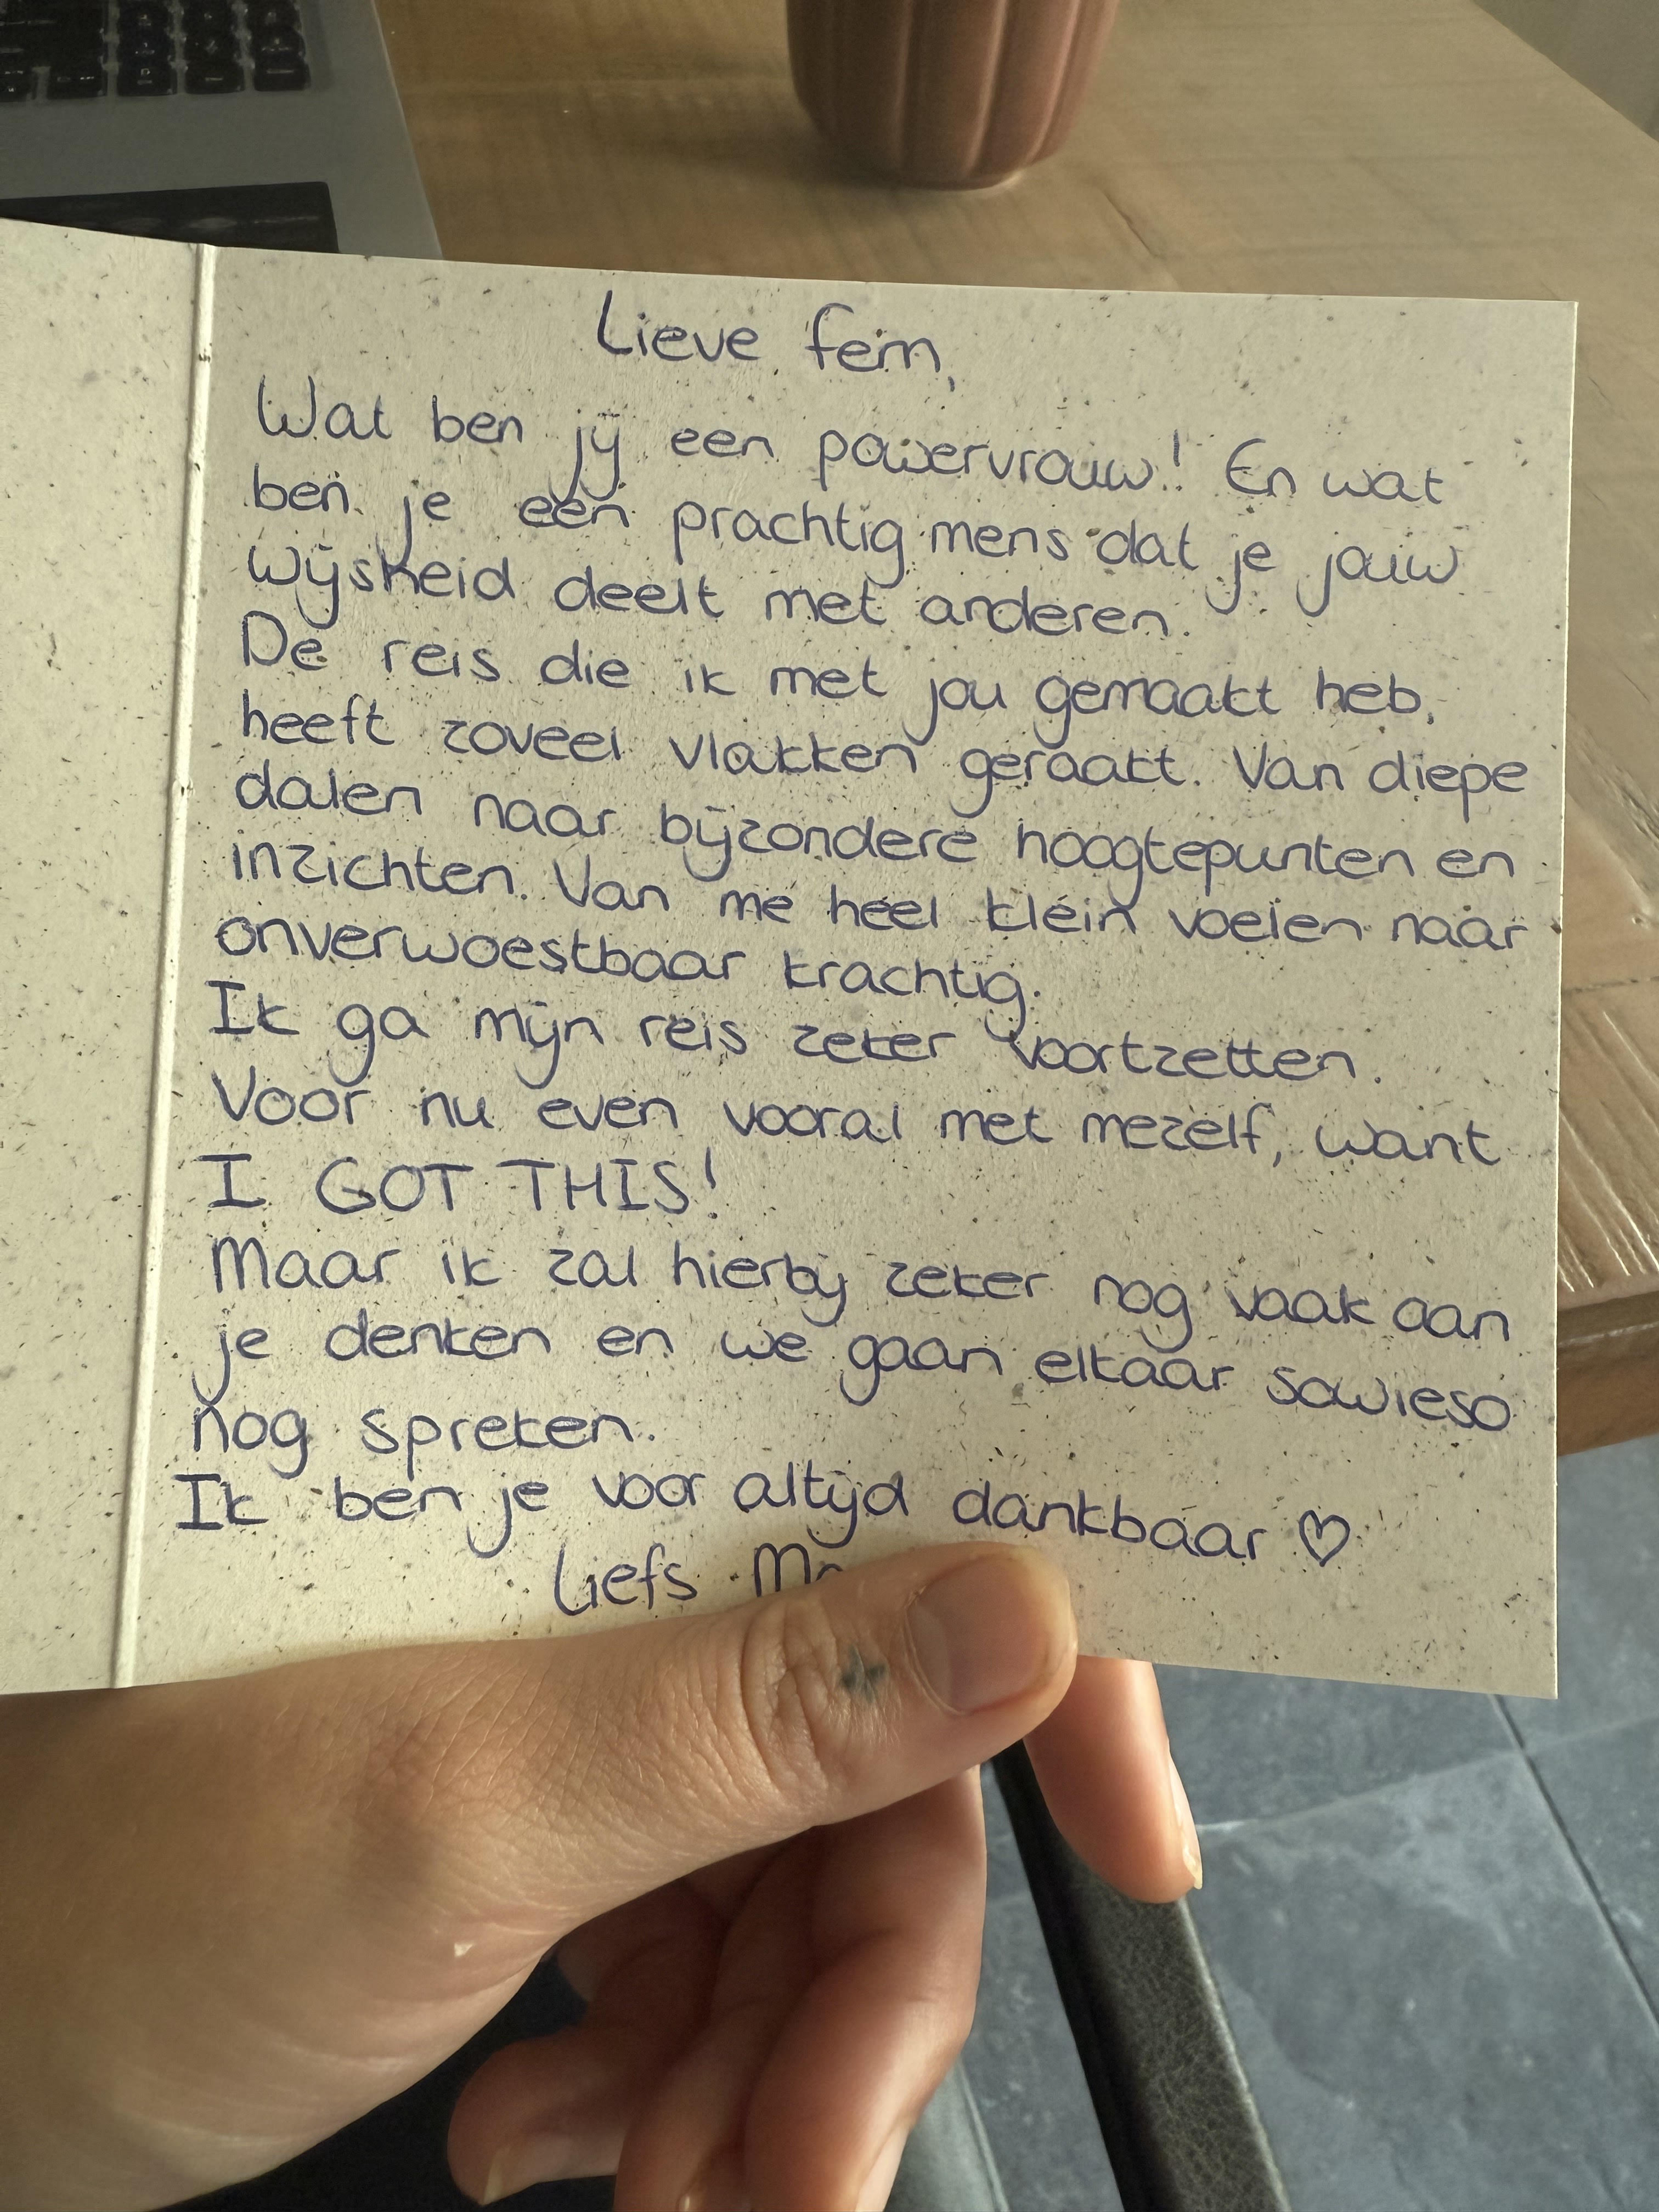 Lieve Fem,
Wat ben jij een powervrouw! En wat
ben je een prachtig mens dat je jouw
wijsheid deelt met anderen.
De reis die ik met jou gemaakt heb,
heeft zoveel vlakken geraakt. Van diepe
dalen naar bijzondere hoogtepunten en
inzichten. Van me heel klein voelen naar
onverwoestbaar krachtig.
Ik ga mijn reis zeker voortzetten.
Voor nu even vooral met mezelf, want
I GOT THIS!
Maar ik zal hierbij zeker nog vaak aan
je denken en we gaan elkaar sowieso
nog spreken.
Ik ben je voor altijd dankbaar ♡
Liefs